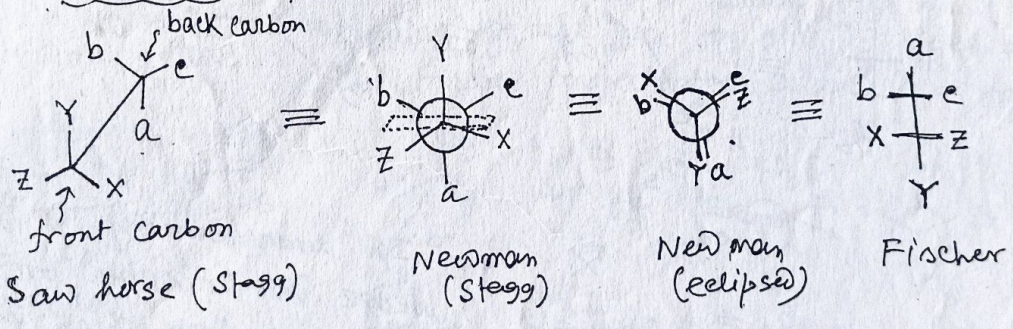 back carbon
b e
Y a
Z X
front carbon
Saw horse (Stagg)
≡
Y
b e
Z X
a
Newman
(Stegg)
≡
X e
b Z
Y a
Newman
(eclipsed)
≡
a
b e
X Z
Y
Fischer